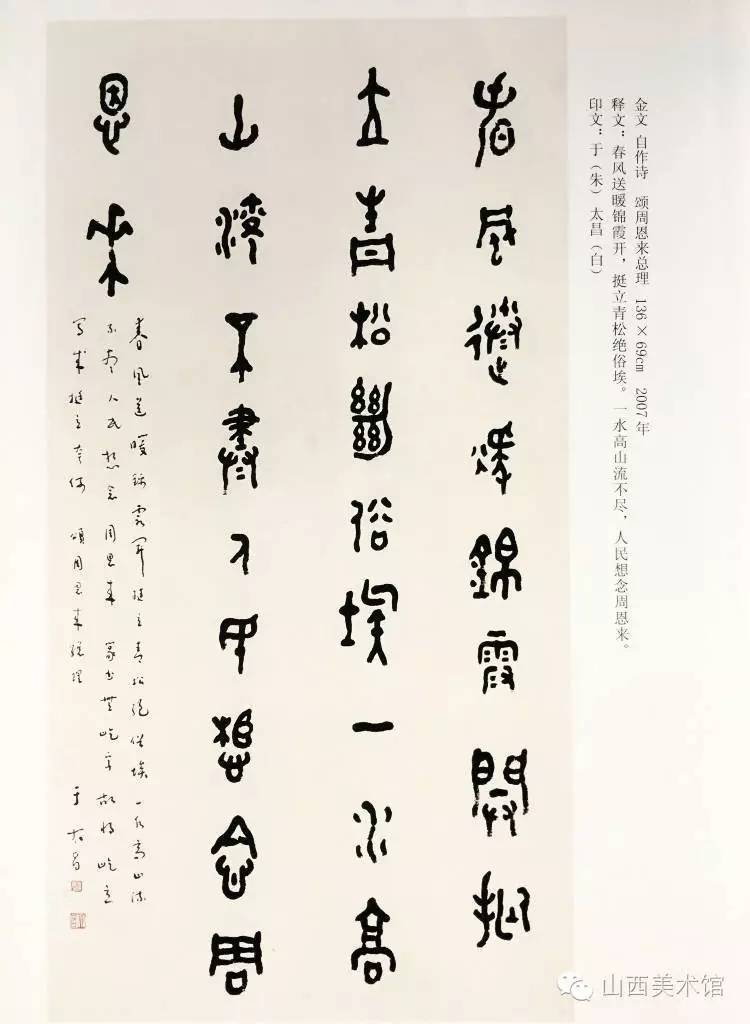 金文 自作诗 颂周恩来总理 136×69cm 2007年
释文：春风送暖锦霞开，挺立青松绝俗埃。一水高山流不尽，人民想念周恩来。
印文：于（朱）太昌（白）
春風送暖錦霞開挺
立青松絕俗埃一水高
山流不盡人民想念周
恩來
春風送暖錦霞開挺立青松絕俗埃一水高山流
不盡人民想念周恩來 篆书無屹字故將屹立
写成挺立奈何 頌周恩來總理
于太昌
山西美术馆